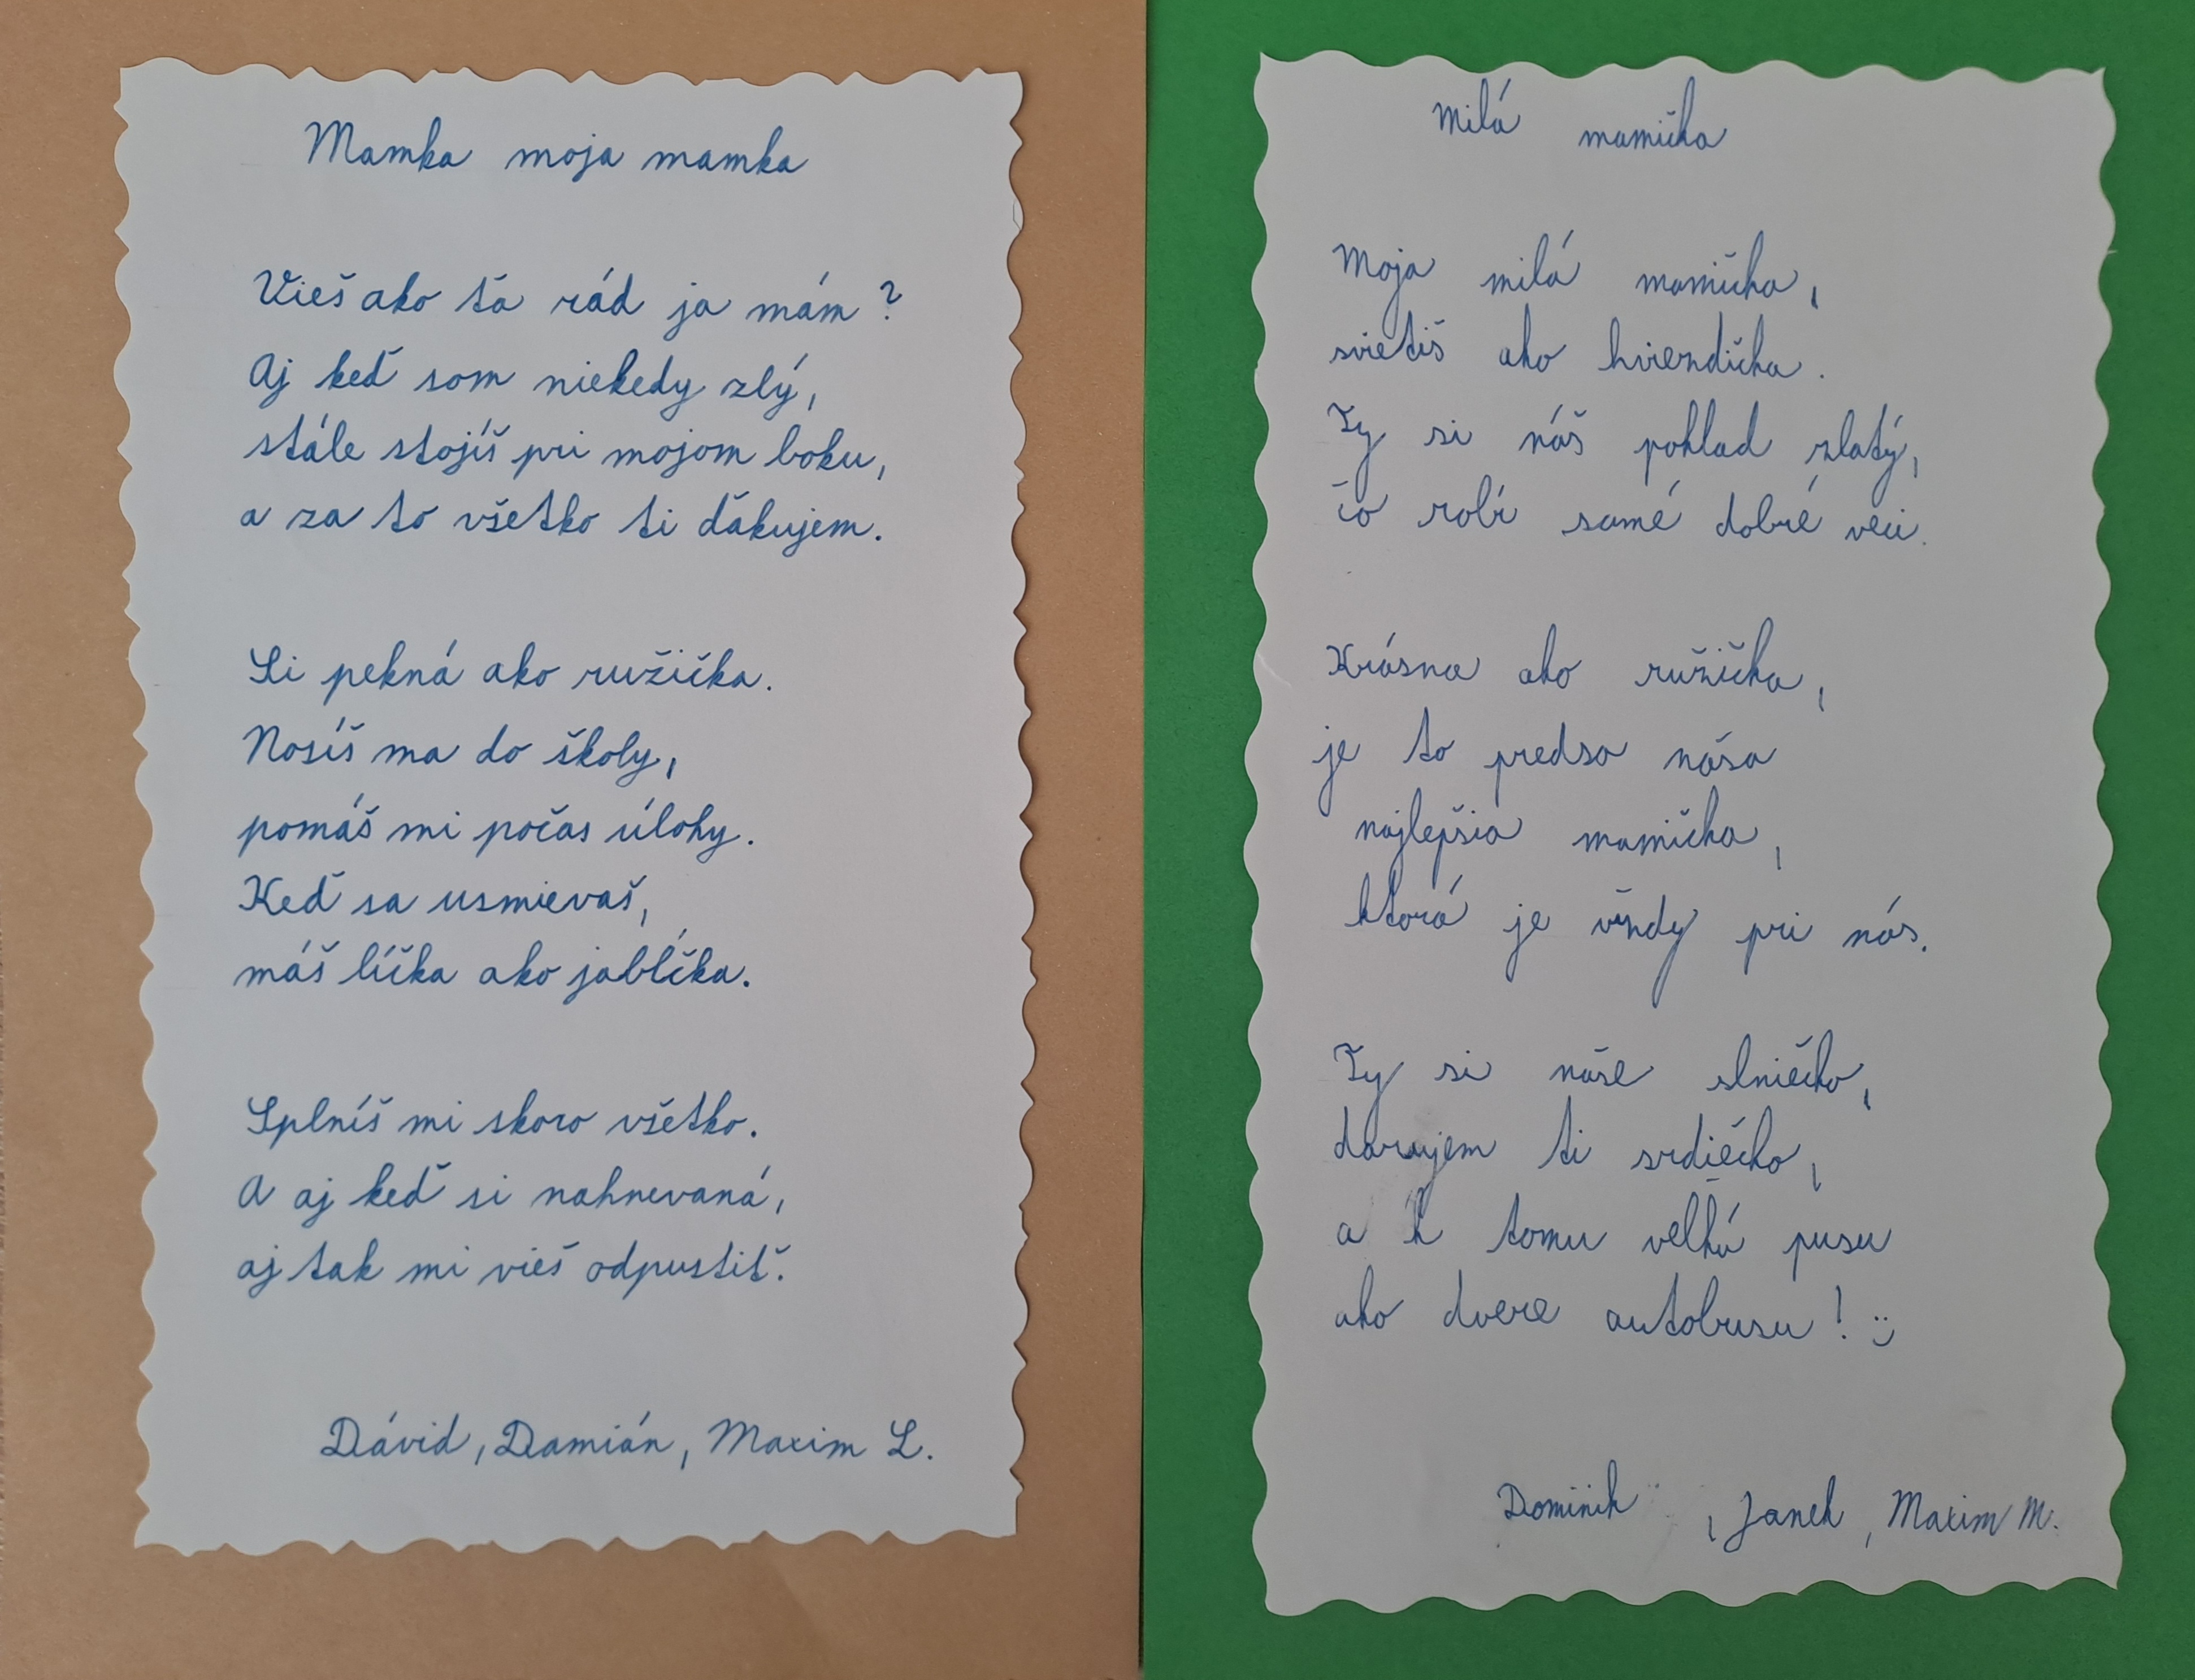 Mamka moja mamka
Vieš ako ťa rád ja mám?
Aj keď som niekedy zlý,
stále stojíš pri mojom boku,
a za to všetko ti ďakujem.
Si pekná ako ružička.
Nosíš ma do školy,
pomáš mi počas úlohy.
Keď sa usmievaš,
máš líčka ako jabĺčka.
Splníš mi skoro všetko.
A aj keď si nahnevaná,
aj tak mi vieš odpustiť.
Dávid, Damián, Maxim L.
Milá mamička
Moja milá mamička,
svietiš ako hviezdička.
Ty si náš pohlad zlatý,
čo robí samé dobré veci.
Krásna ako ružička,
je to predsa náša
najlepšia mamička,
ktorá je vždy pri nás.
Ty si naše slniečko,
darujem ti srdiečko,
a k tomu veľkú pusu
ako dvere autobusu! :)
Dominik, Janek, Maxim M.